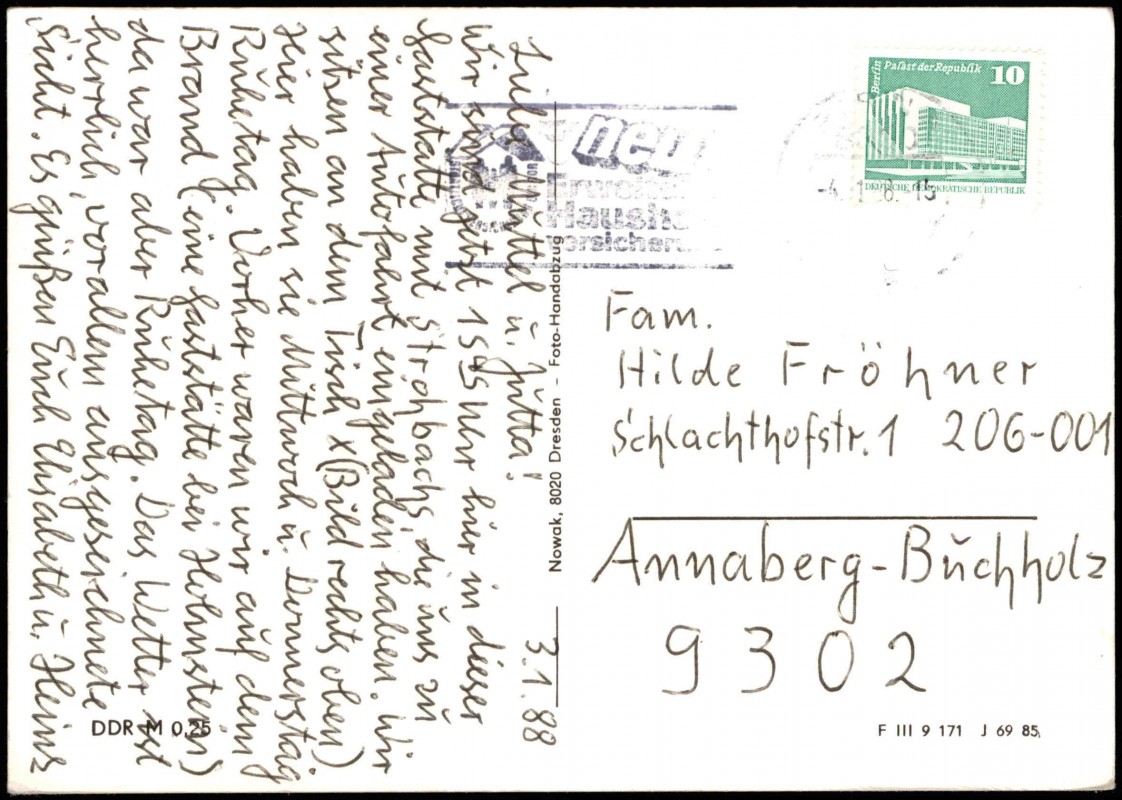 3.1.88
Liebe Muttel u. Jutta!
Wir sind jetzt 15 45 Uhr hier in dieser
Gaststätte mit Strohbachs, die uns zu
einer Autofahrt eingeladen haben. Wir
sitzen an dem Tisch x (Bild rechts oben)
Hier haben sie Mittwoch u. Donnerstag
Ruhetag. Vorher waren wir auf dem
Brand (eine Gaststätte bei Hohnstein)
da war aber Ruhetag. Das Wetter ist
herrlich, vorallem ausgezeichnete
Sicht. Es grüßen Euch Elisabeth u. Heinz
DDR M 0,25
Nowak, 8020 Dresden – Foto-Handabzug
neu
Hausha
versicheru
-4. 1. 8
Berlin Palast der Republik 10
DEUTSCHE DEMOKRATISCHE REPUBLIK
Fam.
Hilde Fröhner
Schlachthofstr. 1 206-001
Annaberg-Buchholz
9302
F III 9 171 J 69 85